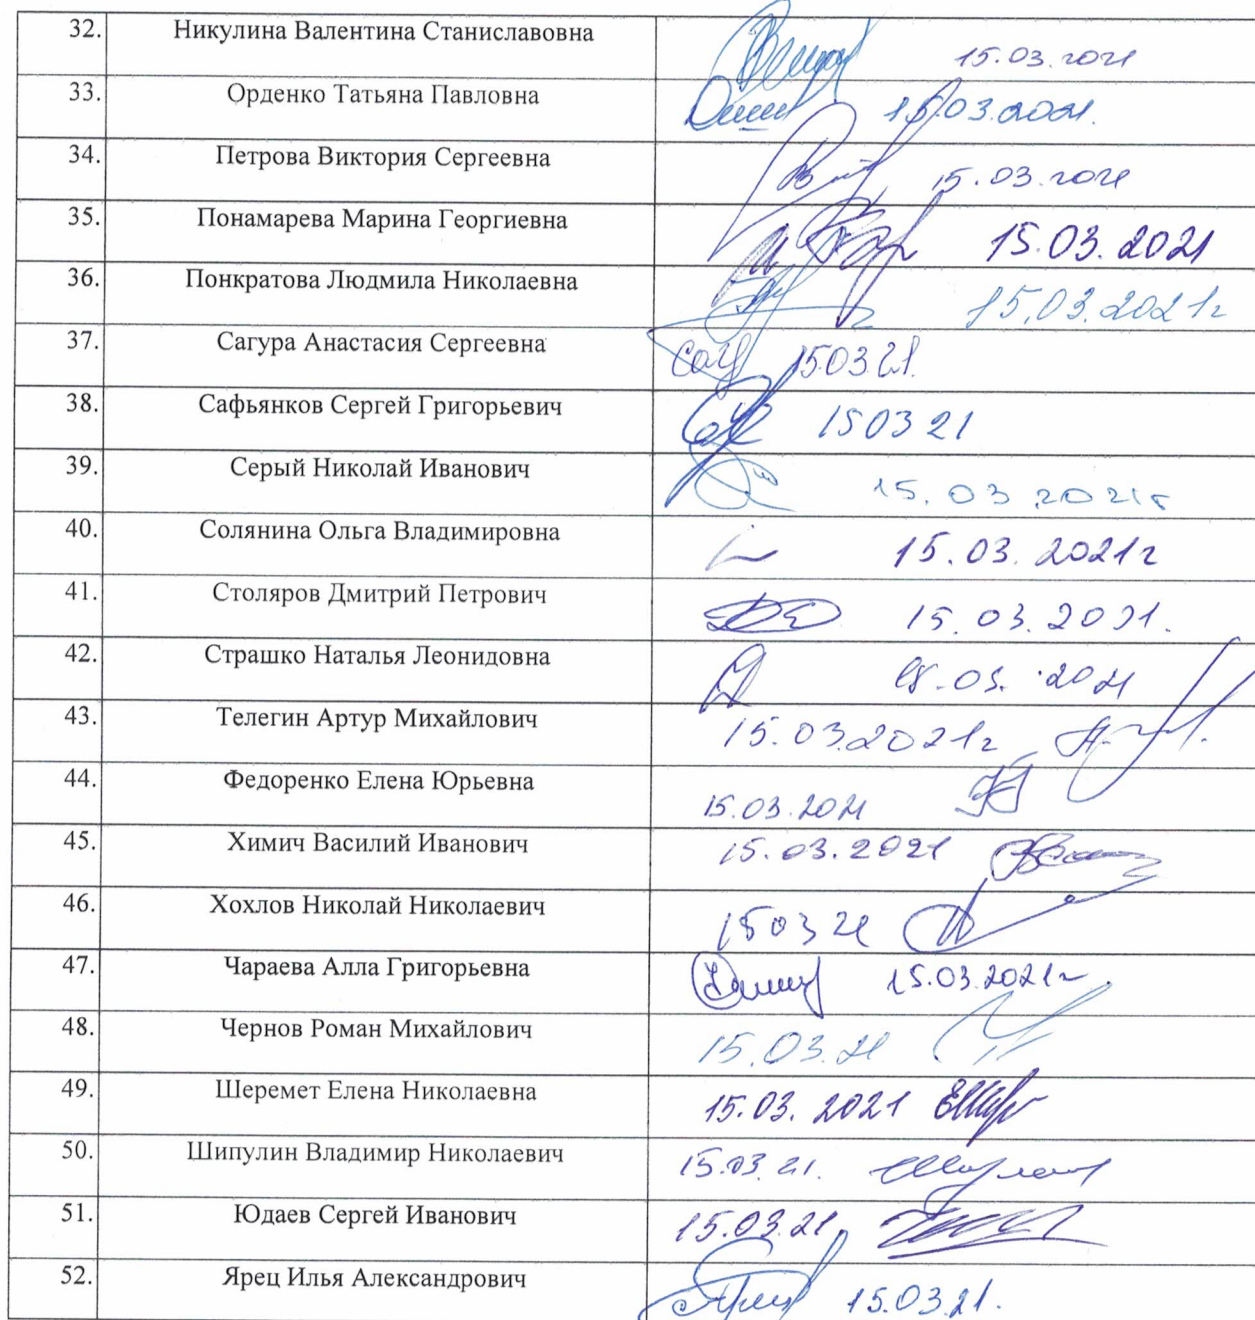 32. Никулина Валентина Станиславовна 15.03.2021
33. Орденко Татьяна Павловна 15.03.2021.
34. Петрова Виктория Сергеевна 15.03.2021
35. Понамарева Марина Георгиевна 15.03.2021
36. Понкратова Людмила Николаевна 15.03.2021г
37. Сагура Анастасия Сергеевна 150321.
38. Сафьянков Сергей Григорьевич 150321
39. Серый Николай Иванович 15.03.2021г
40. Солянина Ольга Владимировна 15.03.2021г
41. Столяров Дмитрий Петрович 15.03.2021.
42. Страшко Наталья Леонидовна 15.03.2021
43. Телегин Артур Михайлович 15.03.2021г
44. Федоренко Елена Юрьевна 15.03.2021
45. Химич Василий Иванович 15.03.2021
46. Хохлов Николай Николаевич 150321
47. Чараева Алла Григорьевна 15.03.2021г.
48. Чернов Роман Михайлович 15.03.21
49. Шеремет Елена Николаевна 15.03.2021
50. Шипулин Владимир Николаевич 15.03.21.
51. Юдаев Сергей Иванович 15.03.21.
52. Ярец Илья Александрович 15.03.21.